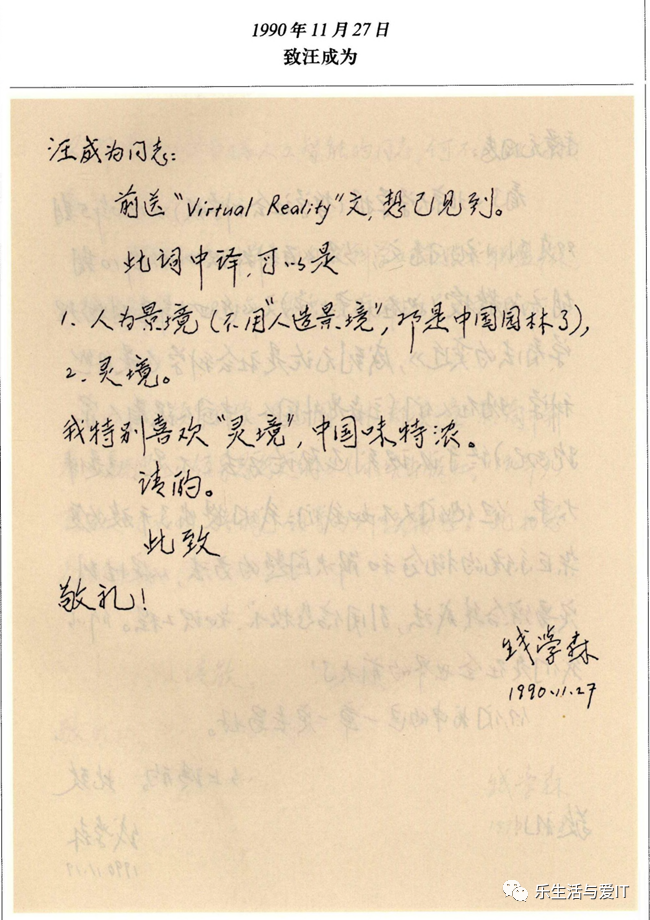 1990年11月27日
致汪成为
汪成为同志：
前送“Virtual Reality”文，想已见到。
此词中译，可以是
1. 人为景境（不用“人造景境”，那是中国园林了），
2. 灵境。
我特别喜欢“灵境”，中国味特浓。
请酌。
此致
敬礼！
钱学森
1990.11.27
乐生活与爱IT